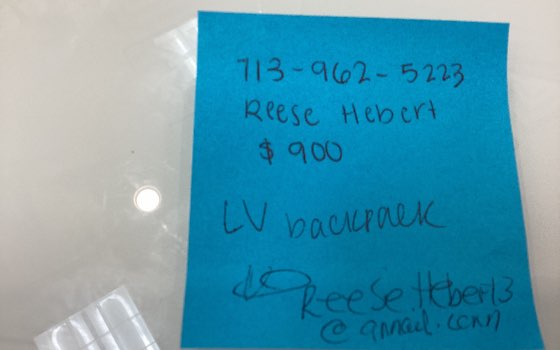 713-962-5223
Reese Hebert
$900
LV backpack
ReeseHebert3
@gmail.com